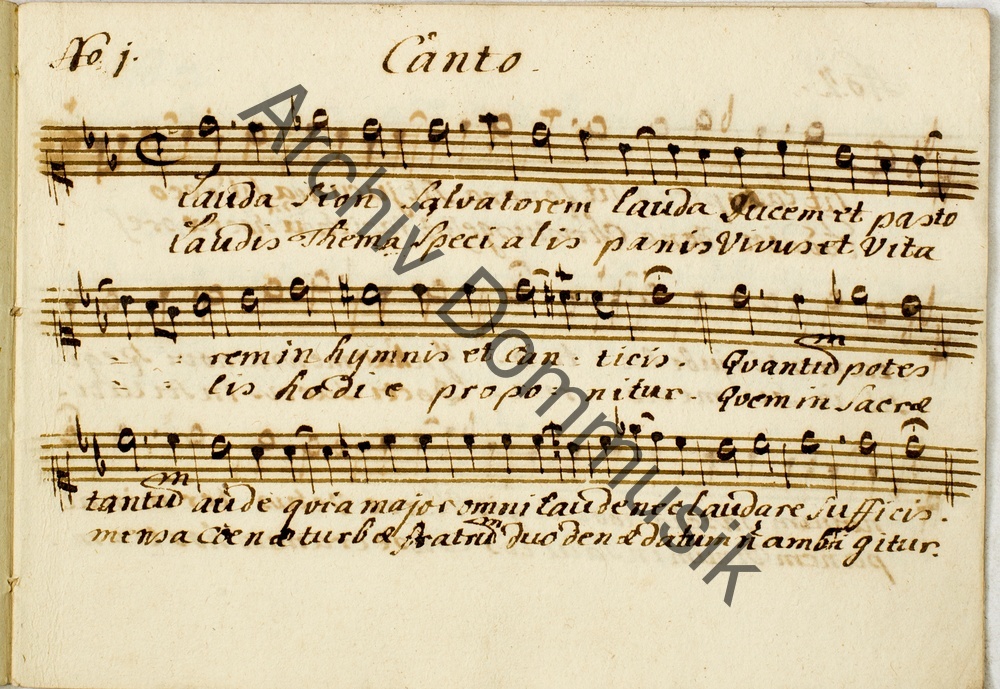 No. 1. Canto
Lauda Sion Salvatorem lauda Ducem et pasto
laudis Thema Speci alis panis Vivus et Vita
- - rem in hymnis et can - ticis. Quantū potes
- - lis hodie propo - nitur. Quem in Sacræ
tantū aude quia major omni laude nec laudare Sufficis.
mensa Coenæ turbæ fratrū duodenæ datum n̄ ambigitur.
Archiv Dommusik